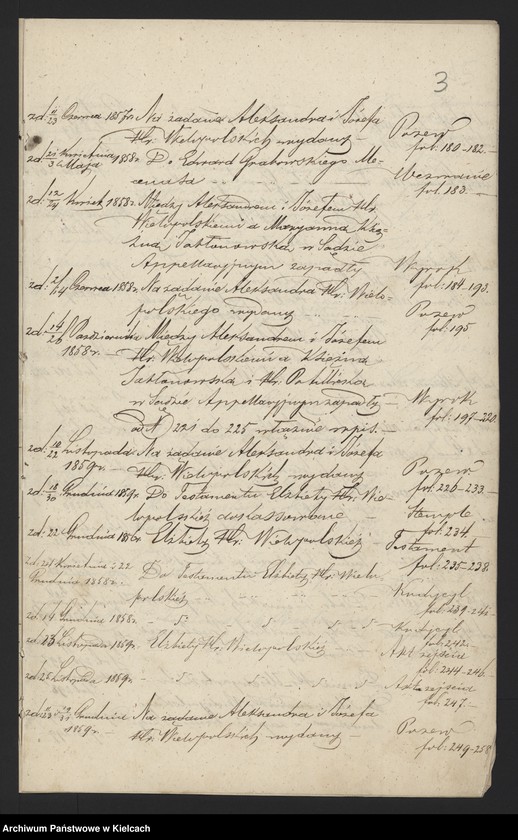 3
zd. 11/23 Czerwca 1857r. Na żądanie Aleksandra i Józefa
Hr. Wielopolskich wydany — Pozew
fol: 180-182. —
zd. 21 Kwietnia/3 Maja 1858r. Do Edward Grabowskiego Me-
cenasa — Wezwanie
fol. 183. —
zd. 12/24 1858r. Między Aleksandrem i Józefem Hr.
Wielopolskiemi a Maryanną Xię-
żną Jabłonowską, w Sądzie
Appellacyjnym zapadły Wyrok
fol: 184-193.
zd. 2/14 Czerwca 1858r. Na żądanie Aleksandra Hr. Wielo-
polskiego wydany Pozew
fol: 195
zd. 14/26 Października Między Aleksandrem i Józefem
1858r. — Hr. Wielopolskiemi a Xiężną
Jabłonowską i Hr. Potulicką
w Sądzie Appellacyjnym zapadły — Wyrok
fol: 197-220.
od N. 221 do 225 właśnie wpis. —
zd. 10/22 Listopada Na żądanie Aleksandra i Józefa
1859r. — Hr. Wielopolskich wydany Pozew
fol. 226-233. —
zd. 18/30 Grudnia 1859r. Do Testamentu Elżbiety Hr. Wie-
lopolskiej dokassowane Stemple
fol. 234.
zd. 22 Grudnia 1856r. Elżbiety Hr. Wielopolskiej Testament
fol: 235-238.
zd. 27 Kwietnia i 22
Grudnia 1858r. Do Testamentu Elżbiety Hr. Wielo-
polskiej Kodycyl
fol: 239-241.
zd. 14 Grudnia 1858r. Kodycyl
fol: 242. —
zd. 23 Listopada 1859r. Elżbiety Hr. Wielopolskiej Akt zejścia
fol. 244-246. —
zd. 25 Listopada 1859r. Akt zejścia
fol. 247. —
zd. Grudnia Na żądanie Aleksandra i Józefa
1859r. — Hr. Wielopolskich wydany — Pozew
fol: 249-258.
Archiwum Państwowe w Kielcach